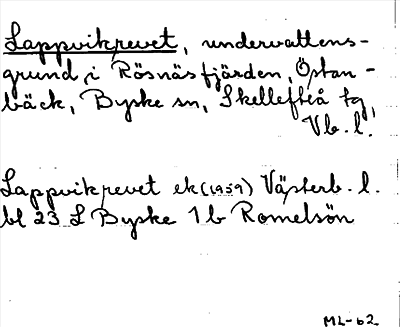 Lappvikrevet, undervattens-
grund i Rösnäsfjärden, Östan-
bäck, Byske sn, Skellefteå tg,
Vb. l.
Lappvikrevet ek (1959) Västerb. l.
bl 23 L Byske 1b Romelsön
ML-62